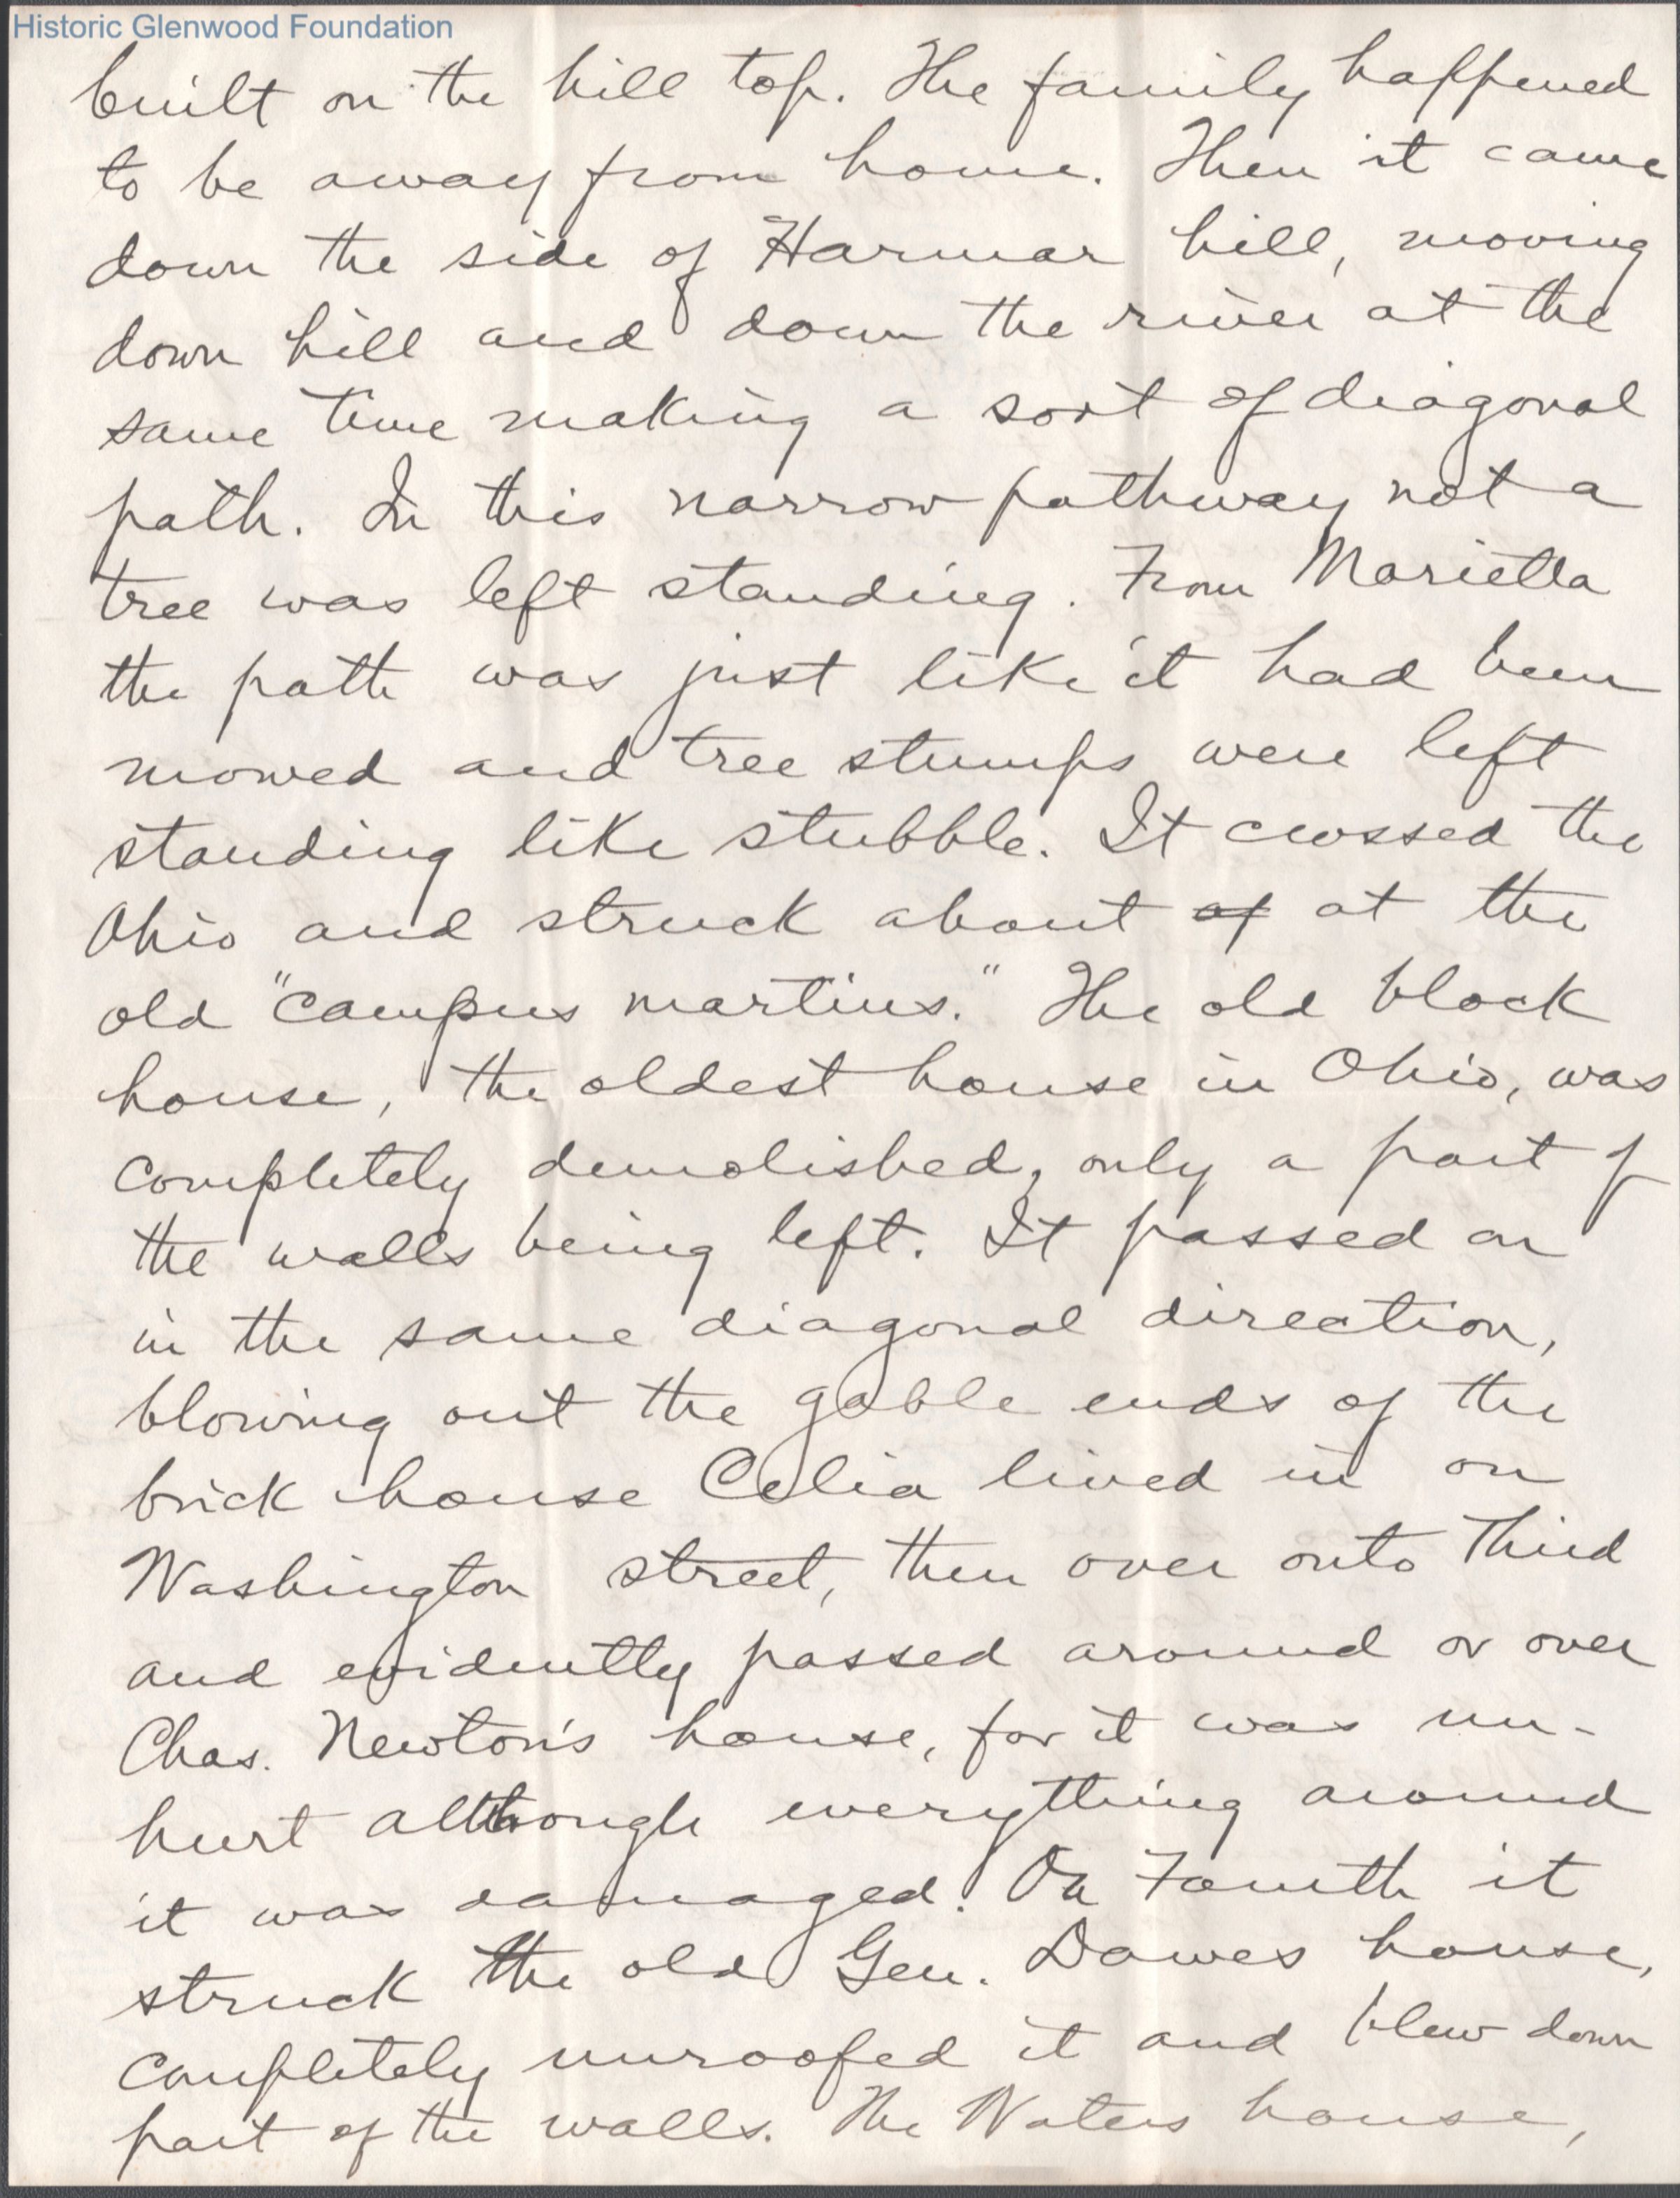 Historic Glenwood Foundation
built on the hill top. The family happened
to be away from home. Then it came
down the side of Harmar hill, moving
down hill and down the river at the
same time making a sort of diagonal
path. In this narrow pathway not a
tree was left standing. From Marietta
the path was just like it had been
mowed and tree stumps were left
standing like stubble. It crossed the
Ohio and struck about of at the
old "campus martius." The old block
house, the oldest house in Ohio, was
completely demolished, only a part of
the walls being left. It passed on
in the same diagonal direction,
blowing out the gable ends of the
brick house Celia lived in on
Washington street, then over onto Third
and evidently passed around or over
Chas. Newton's house, for it was un-
hurt although everything around
it was damaged. On Fourth it
struck the old Gen. Dawes house,
completely unroofed it and blew down
part of the walls. The Waters house,